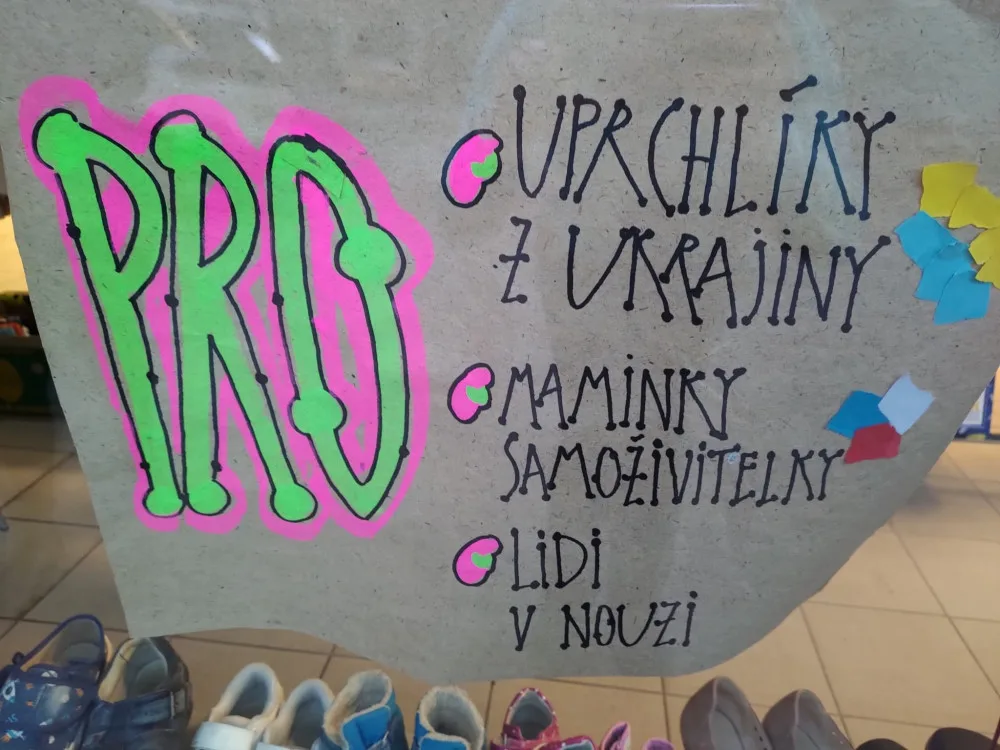 PRO
UPRCHLÍKY
Z UKRAJINY
MAMINKY
SAMOŽIVITELKY
LIDI
V NOUZI